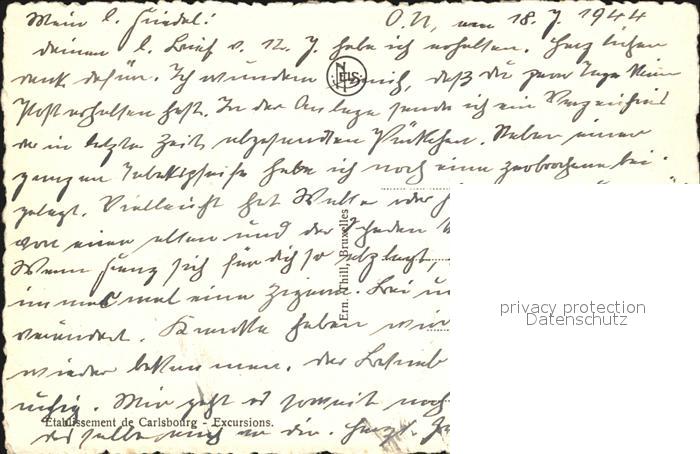 Mein l. Friedel! O.U., am 18.7.1944
deinen l. Brief v. 12.7. habe ich erhalten. Herzlichen
dank dafür. Ich wundere mich, daß du paar Tage keine
Post erhalten hast. In der Anlage sende ich ein Verzeichnis
der in letzter Zeit abgesandten Päckchen. Neben einer
ganzen Tabakspfeife habe ich noch eine zerbrochene bei-
gelegt. Vielleicht hat Walter oder
von einer alten und der
Wenn sich für dich so
immer mal eine Zigarre. Bei
verändert. haben wir
wieder bekommen. der
ruhig. Mir geht es soweit noch
dasselbe auch von dir. Herzl.
NELS
Ern. Thill, Bruxelles
Etablissement de Carlsbourg - Excursions.
privacy protection
Datenschutz